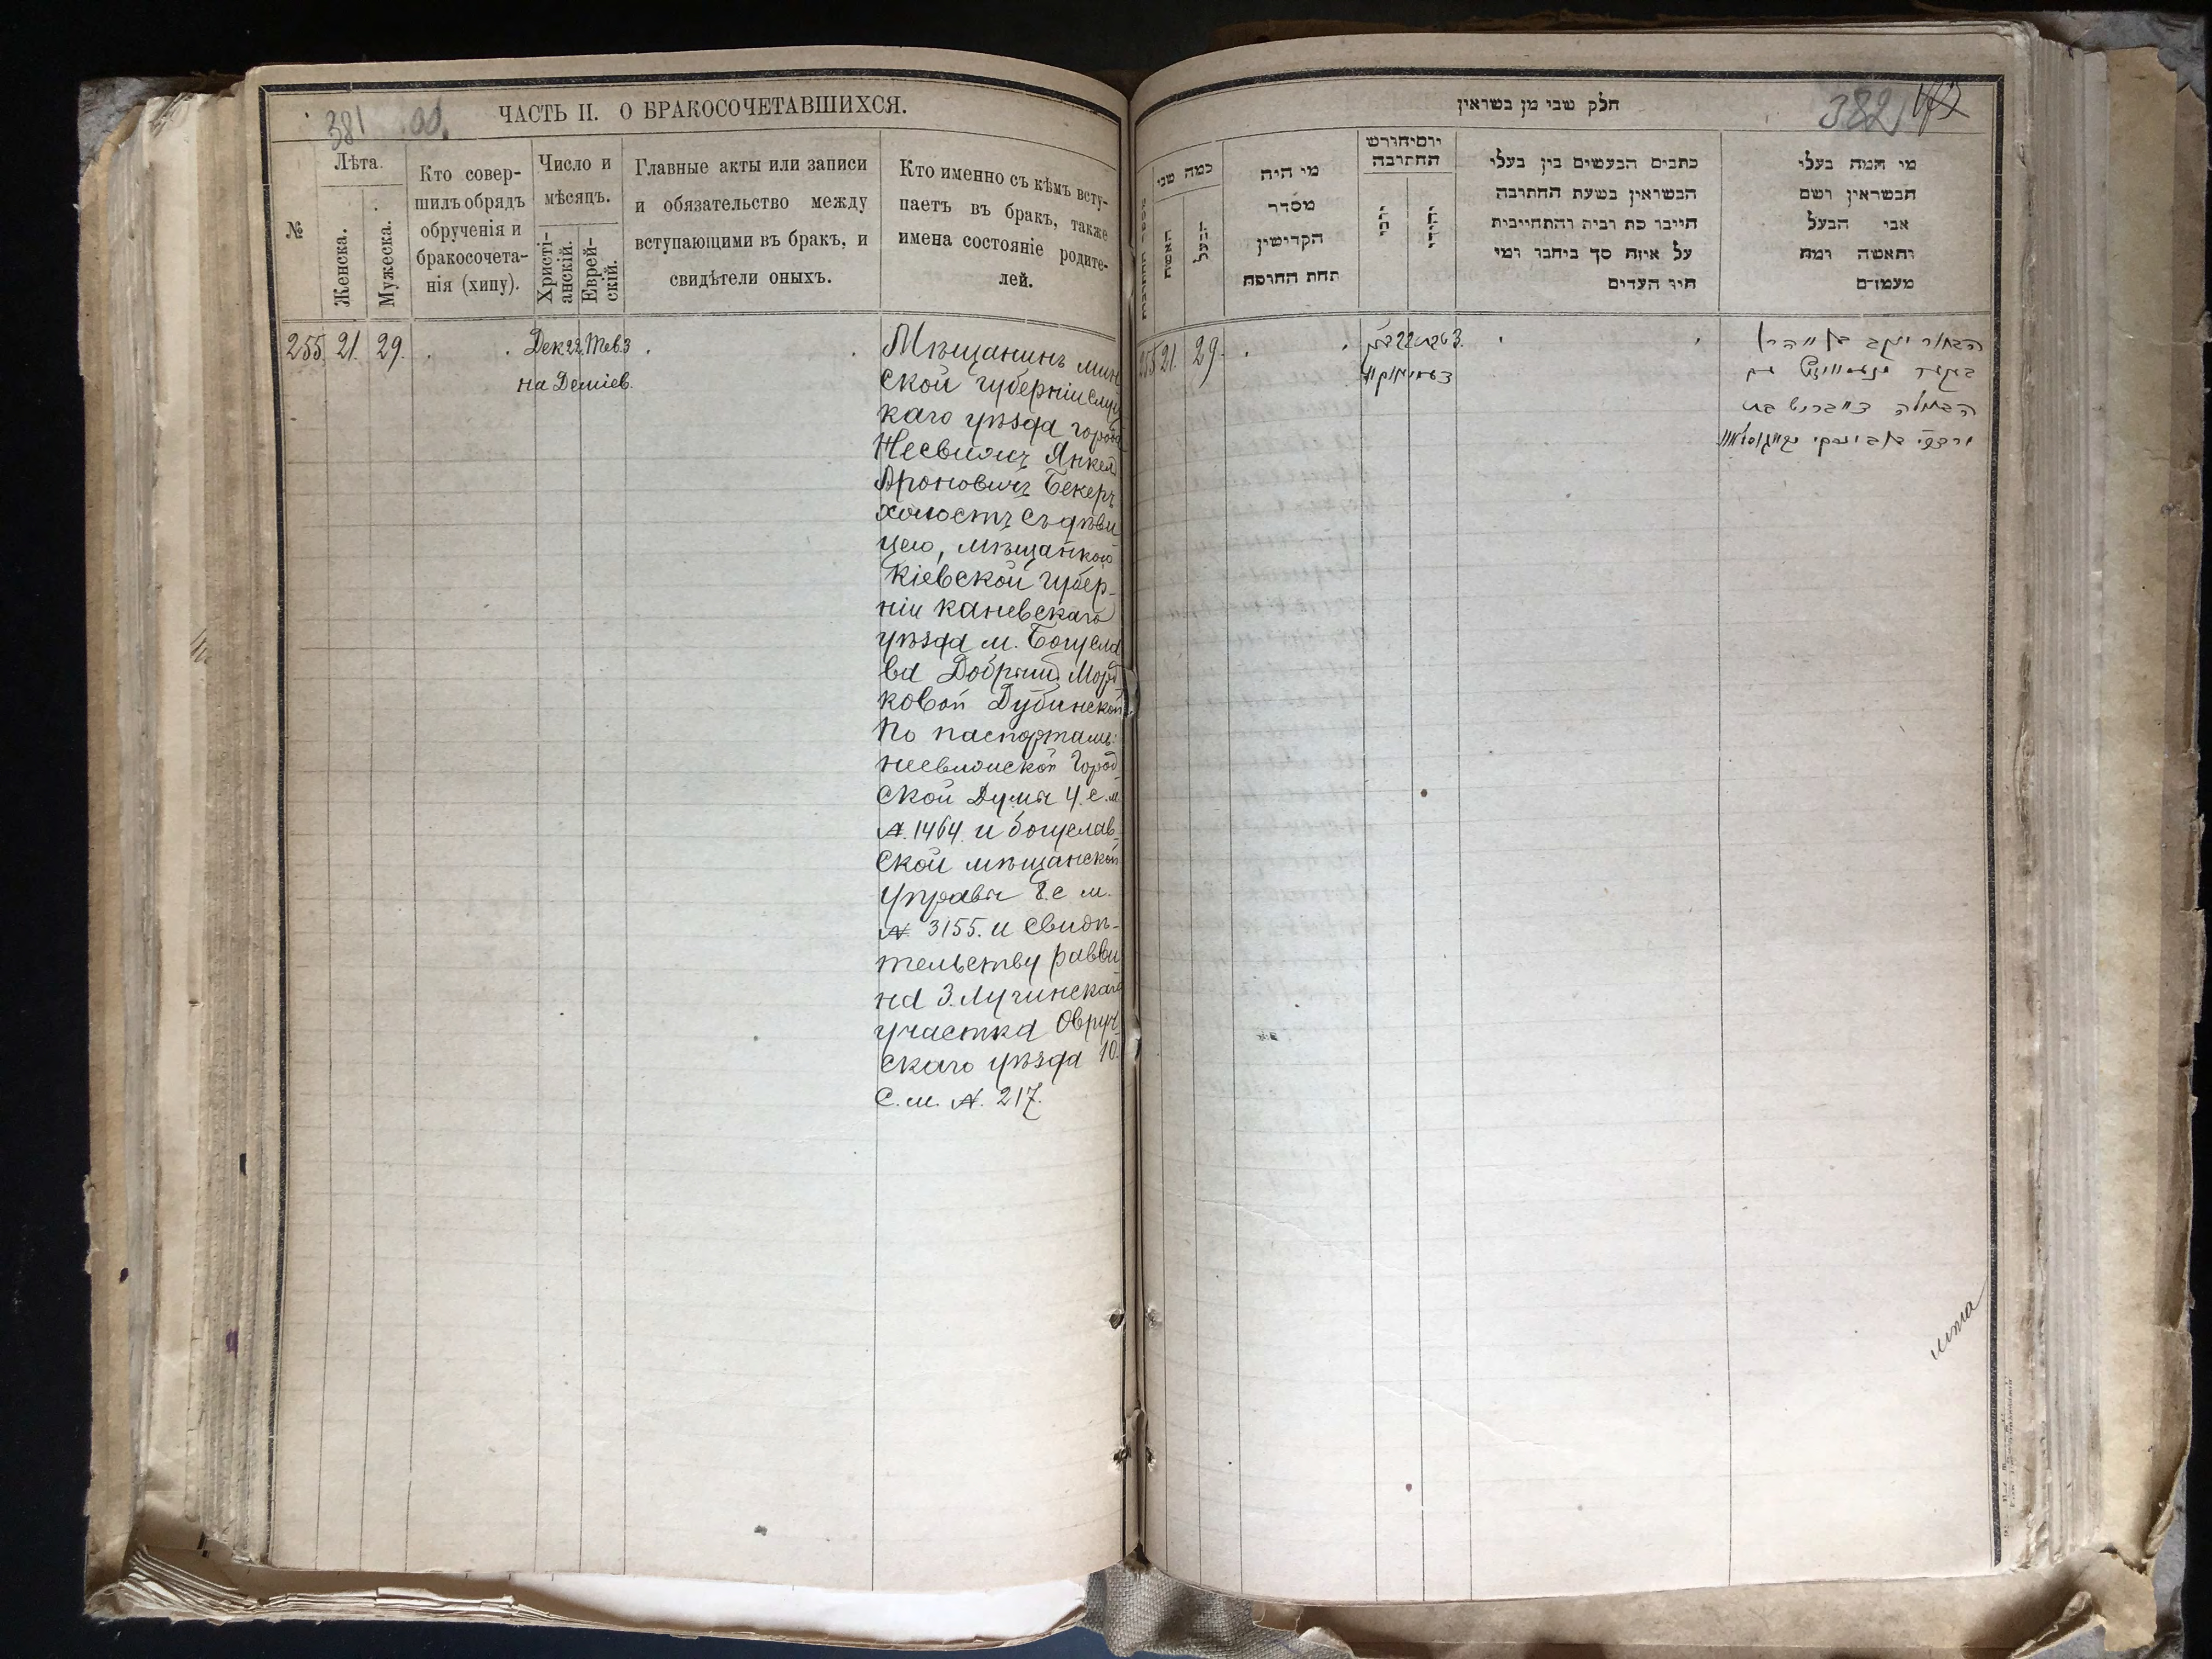 381
ЧАСТЬ II. О БРАКОСОЧЕТАВШИХСЯ.
№
Лѣта.
Женска.
Мужеска.
Кто совер-
шилъ обрядъ
обрученія и
бракосочета-
нія (хипу).
Число и
мѣсяцъ.
Христі-
анскій.
Еврей-
скій.
Главные акты или записи
и обязательство между
вступающими въ бракъ, и
свидѣтели оныхъ.
Кто именно съ кѣмъ всту-
паетъ въ бракъ, также
имена состояніе родите-
лей.
255. 21. 29. Дек. 22. Тев. 3
на Деміев.
Мѣщанинъ мин
ской губерніи слуц
каго уѣзда города
Несвижъ Янкель
Ароновичъ Бекеръ
холостъ съ дѣви
цею, мѣщанкою
Кіевской губер-
ніи каневскаго
уѣзда м. Богусла
ва Добрыш Морд
ковой Дубинской
По паспортамъ:
несвижской город
ской Думы 4. с. м.
№. 1464 и богуслав
ской мѣщанской
управы 8. с м.
№ 3155. и свидѣ-
тельству равви
на З. Лучинскаго
участка Овруч
скаго уѣзда 10.
с. м. №. 217.
382
חלק שבי מן בשואין
כמה שני
האשה
הבעל
מי היה
מסדר
הקדישין
תחת החופה
יום וחודש
החתובה
כתבים הבעשים בין בעלי
הבשואין בשעת החתובה
חייבו כת רבית והתחייבית
על איזה סך ביחבו ומי
חיו העדים
מי המה בעלי
הבשואין ושם
אבי הבעל
והאשה ומה
מעמדם
255 21. 29. 22
הבחור יעקב
הבתולה